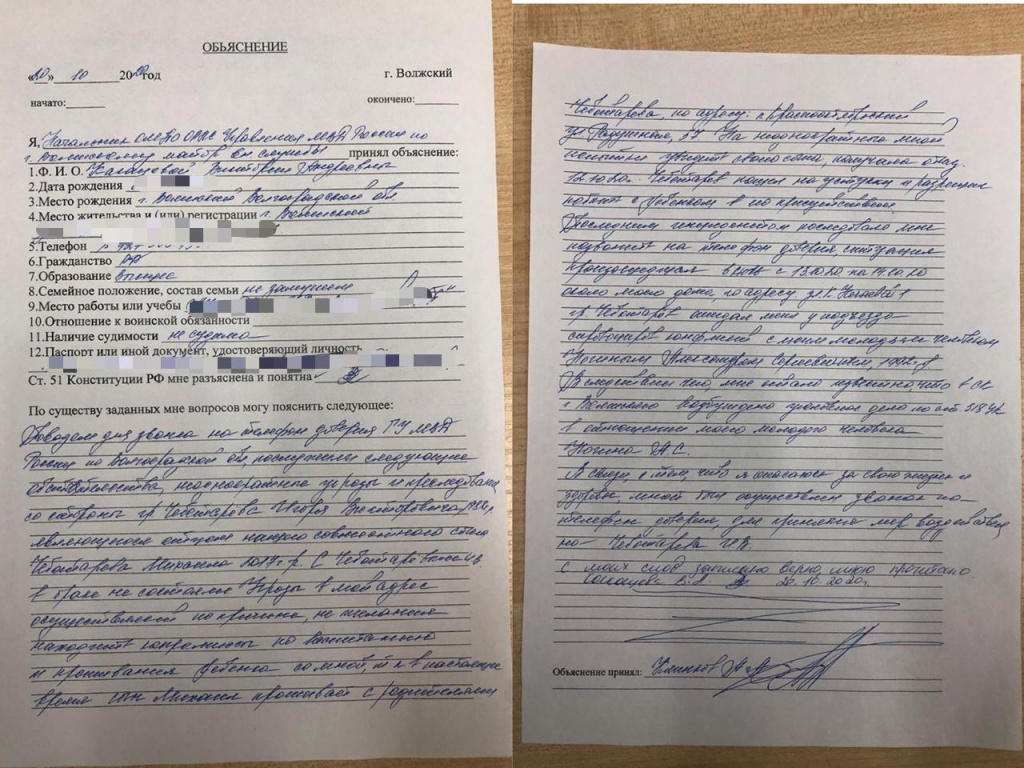 ОБЪЯСНЕНИЕ
«20» 10 2020 год г. Волжский
начато: окончено:
Я, Начальник России по
г. Волжскому майор вн службы принял объяснение:
1.Ф. И. О.
2.Дата рождения
3.Место рождения г. Волжский Волгоградской об.
4.Место жительства и (или) регистрации г. Волжский
5.Телефон
6.Гражданство РФ
7.Образование высшее
8.Семейное положение, состав семьи не замужем
9.Место работы или учебы
10.Отношение к воинской обязанности
11.Наличие судимости не судима
12.Паспорт или иной документ, удостоверяющий личность
Ст. 51 Конституции РФ мне разъяснена и понятна
По существу заданных мне вопросов могу пояснить следующее:
Поводом для звонка на телефон доверия ГУ МВД
России по Волгоградской об, послужили следующие
обстоятельства, неоднократные угрозы и преследования
со стороны гр Чеботарова Игоря Викторовича,
являющегося отцом нашего совместного сына
Чеботарова Михаила 2017г.р. С Чеботаровым
в браке не состояли. Угрозы в мой адрес
осуществляются по причине, не желания
находить компромиссы по воспитанию
и проживания ребенка со мной, т.к в настоящее
время сын Михаил проживает с родителями
Чеботарова, по адресу: г. Краснослободск
ул. 67 На неоднократные мной
попытки увидеть своего сына, получала отказ.
12.10.20г. Чеботаров пошел на уступки и разрешил
побыть с ребенком в его присутствии.
Последним инцидентом последовало мне
позвонить на телефон доверия, ситуация
произошедшая в ночь с 13.10.20 на 14.10.20
около моего дома, по адресу ул.
гр. Чеботаров ожидал меня у подъезда
спровоцировал конфликт с моим молодым человеком
Ногиным Александром Сергеевичем, 1992г.р
В следствии чего, мне стало известно, что в СК
г. Волжского возбуждено уголовное дело по ст. 318 УК
в отношении моего молодого человека
Ногина А.С.
В связи, с тем, что я опасаюсь за свою жизнь и
здоровье, мной был осуществлен звонок по
телефону доверия, для принятия мер воздействия
на Чеботарова И.В.
С моих слов записано верно, мною прочитано
20.10.2020г.
Объяснение принял: